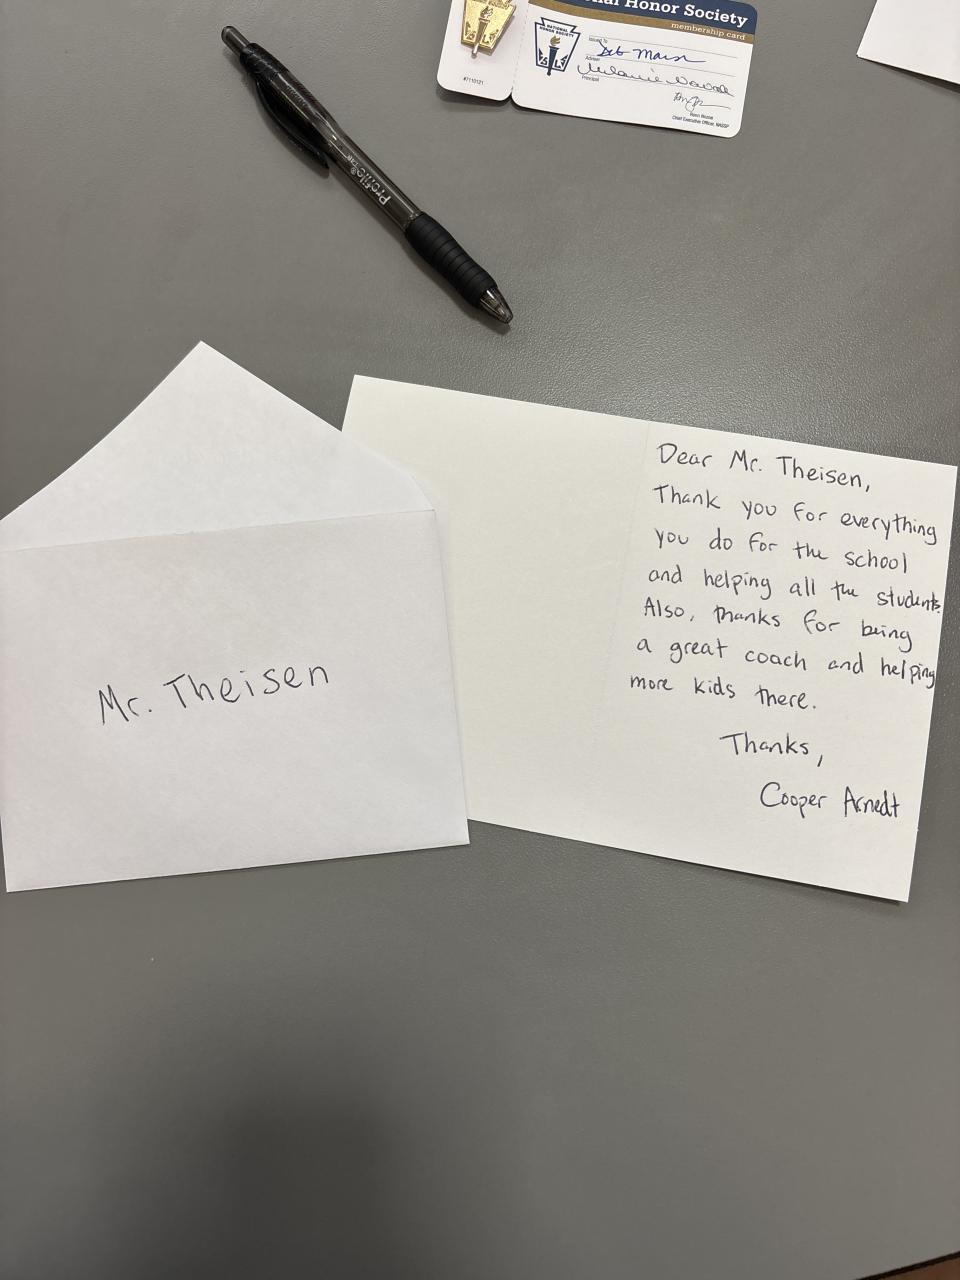 nal Honor Society
membership card
NATIONAL
HONOR SOCIETY
Issued To
Deb Marsh
Adviser
Melanie
Principal
#7110121
Chief Executive Officer, NASSP
Profile®
Dear Mr. Theisen,
Thank you for everything
you do for the school
and helping all the students.
Also, thanks for being
a great coach and helping
more kids there.
Thanks,
Cooper Arnedt
Mr. Theisen